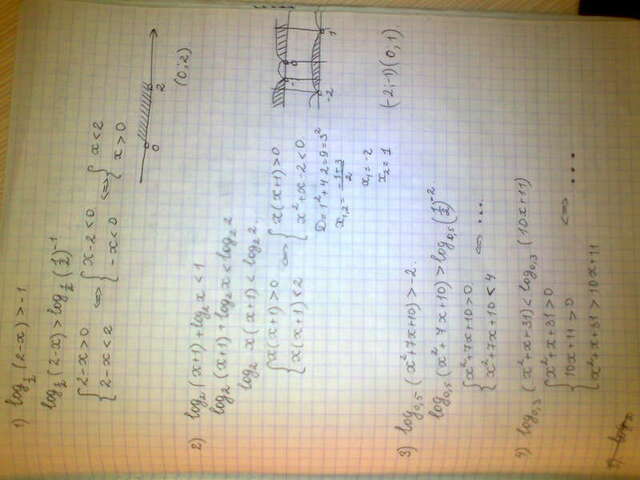 1) log_{1/2} (2-x) > -1
log_{1/2} (2-x) > log_{1/2} (1/2)^{-1}
{ 2-x>0 ⇔ { x-2<0 ⇔ { x<2
{ 2-x<2 { -x<0 { x>0
0 2
(0;2)
2) log_2 (x+1) + log_2 x < 1
log_2 (x+1) + log_2 x < log_2 2
log_2 x(x+1) < log_2 2.
{ x(x+1)>0 ⇔ { x(x+1)>0
{ x(x+1)<2 { x²+x-2<0
D=1²+4·2=9=3²
x_{1,2} = -1±3/2
x_1=-2
x_2=1
-1 0
-2 1
(-2;-1)(0;1)
3) log_{0,5} (x²+7x+10) > -2.
log_{0,5} (x²+7x+10) > log_{0,5} (1/2)^{-2}
{ x²+7x+10>0 ⇔ ...
{ x²+7x+10<4
4) log_{0,3} (x²+x+31) < log_{0,3} (10x+11)
{ x²+x+31>0
{ 10x+11>0 ⇔ ...
{ x²+x+31>10x+11